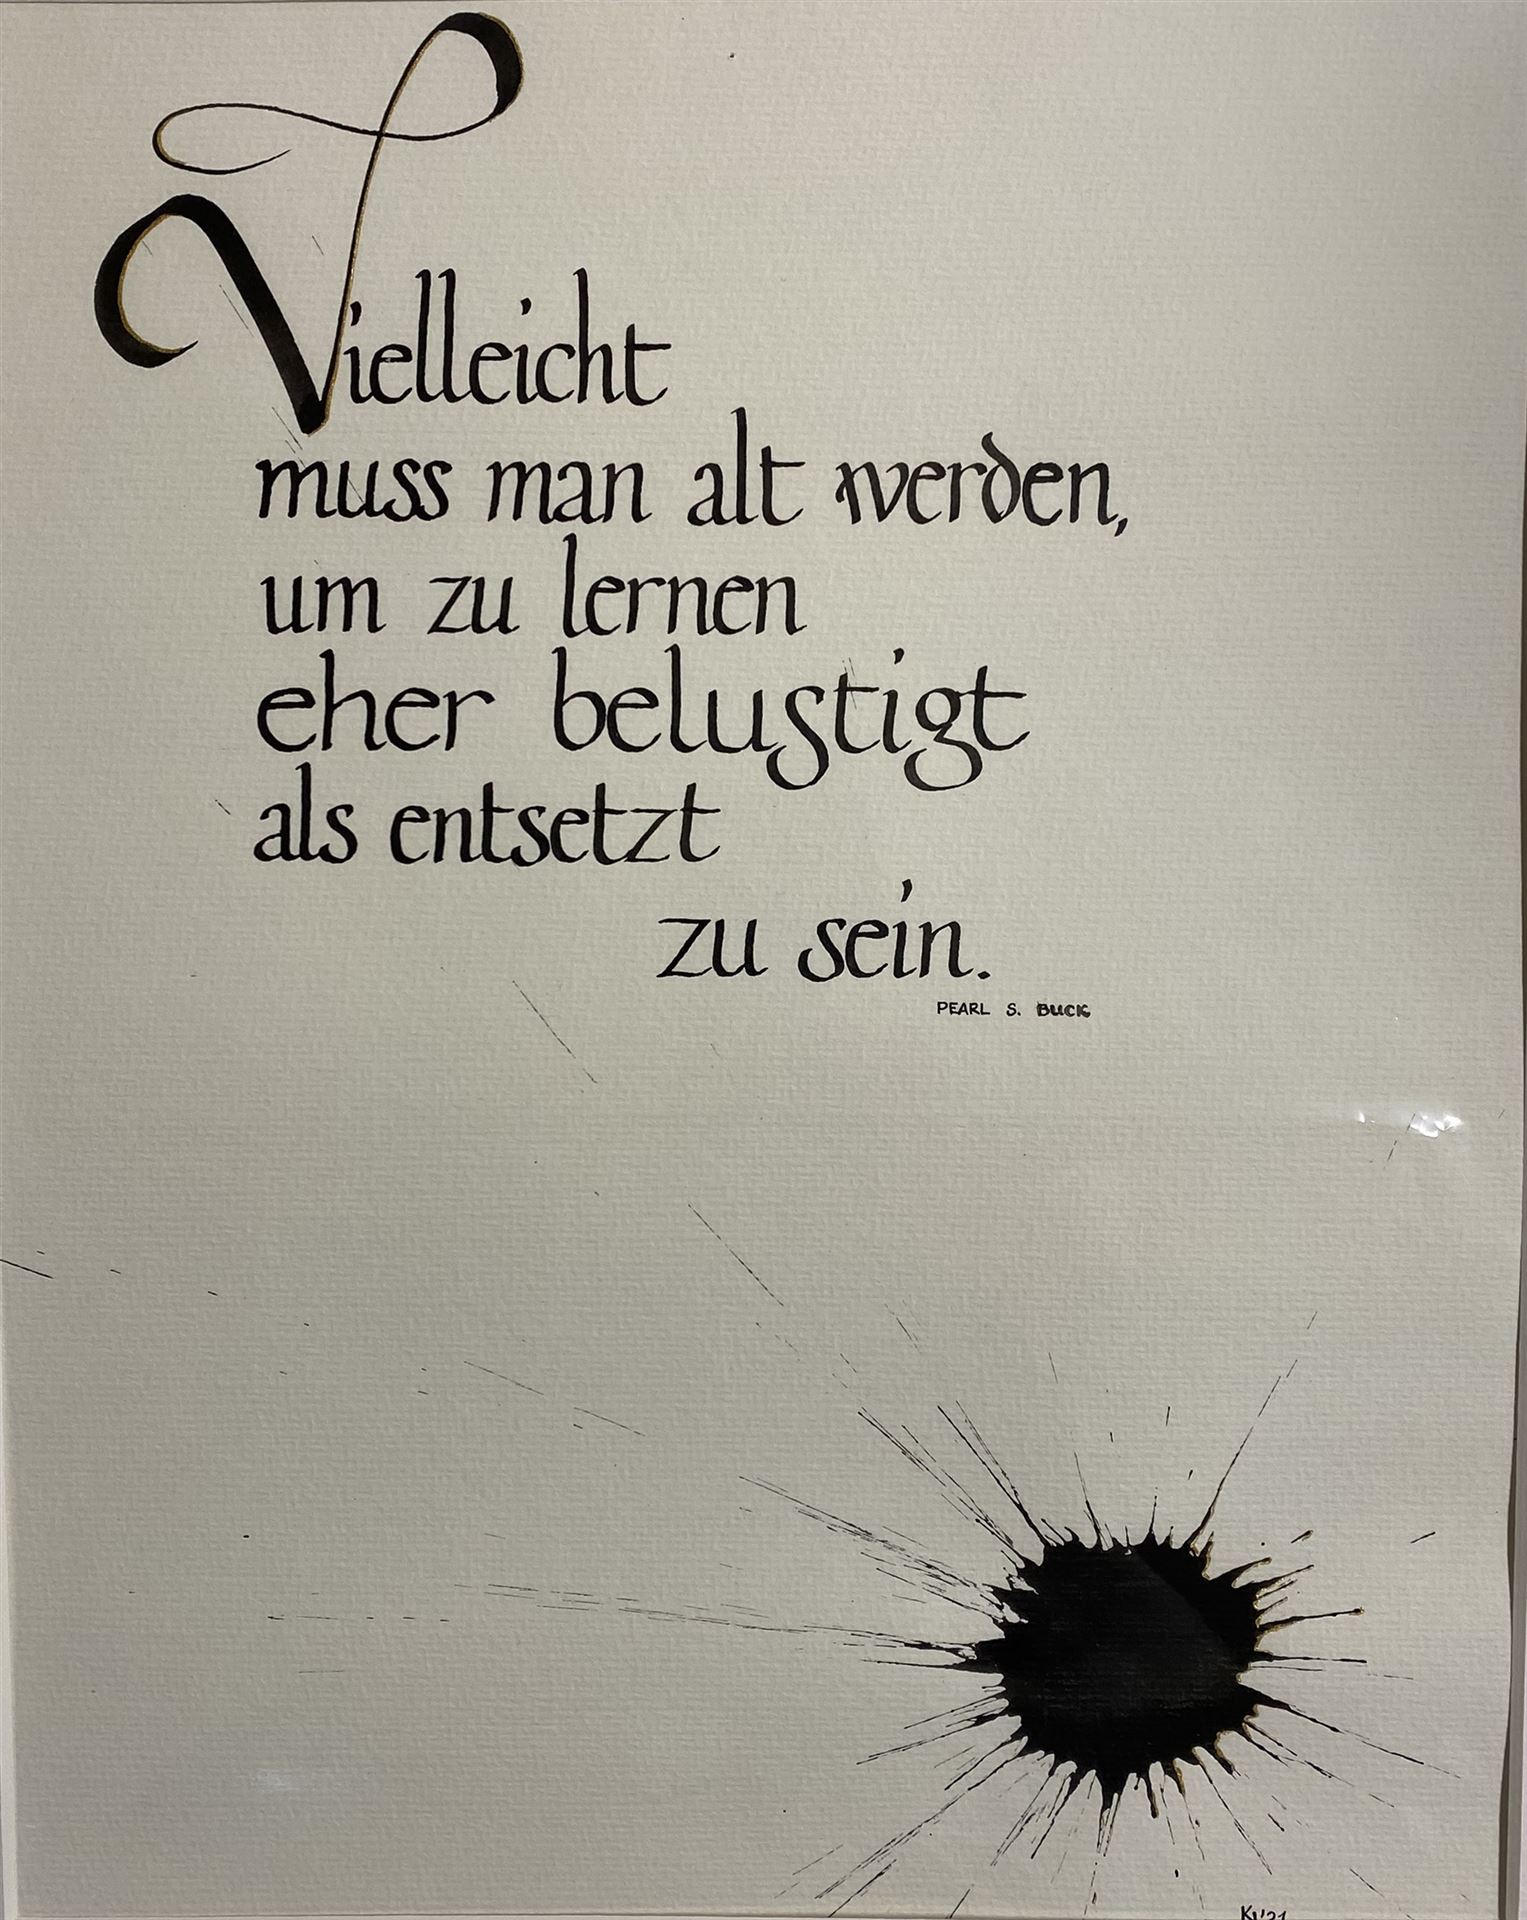 Vielleicht
muss man alt werden,
um zu lernen
eher belustigt
als entsetzt
zu sein.
PEARL S. BUCK